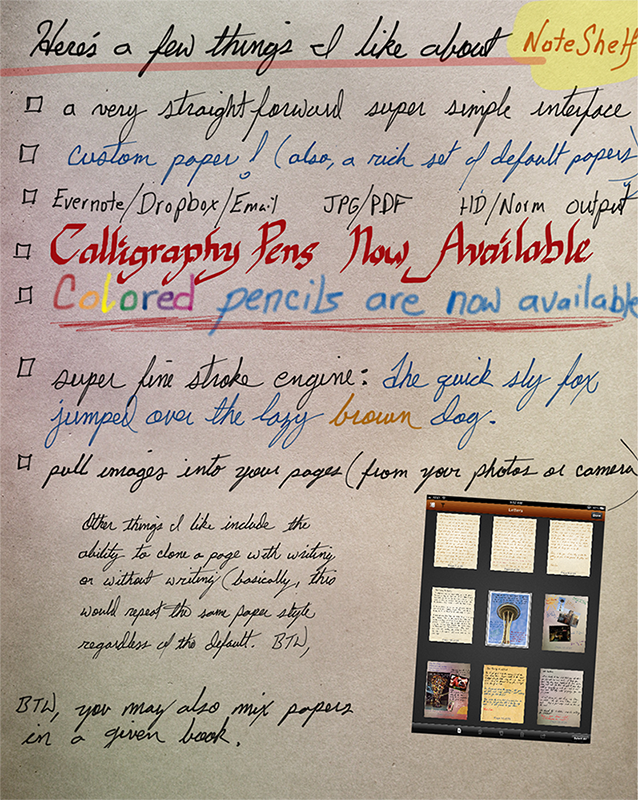 Here's a few things I like about NoteShelf
a very straightforward super simple interface
custom paper! (also, a rich set of default papers)
Evernote/Dropbox/Email JPG/PDF HD/Norm output
Calligraphy Pens Now Available
Colored pencils are now available
super fine stroke engine: The quick sly fox
jumped over the lazy brown dog.
pull images into your pages (from your photos or camera)
Other things I like include the
ability to clone a page with writing
or without writing (basically, this
would repeat the same paper style
regardless of the default. BTW,
Letters
BTW, you may also mix papers
in a given book.